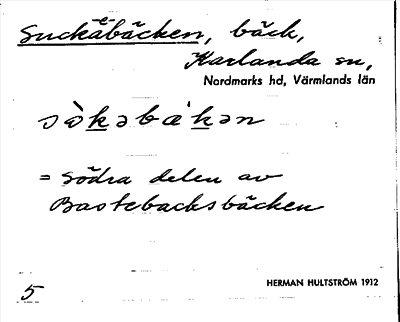 Suckäbäcken, bäck,
Karlanda sn,
Nordmarks hd, Värmlands län
= Södra delen av
Bastebacksbäcken
HERMAN HULTSTRÖM 1912
5